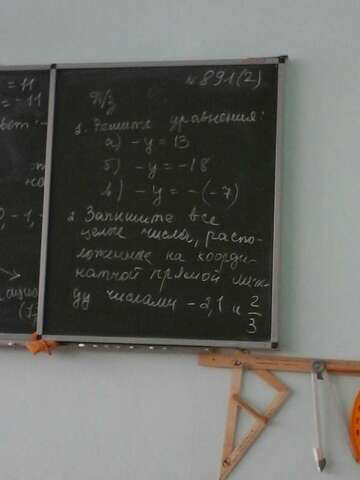 = 11
= -11
№891(2)
Д/з
1. Решите уравнения:
а) -y = 13
б) -y = -18
в) -y = -(-7)
2. Запишите все
целые числа, распо-
ложенные на коорди-
натной прямой меж-
ду числами -2,1 и 2/3